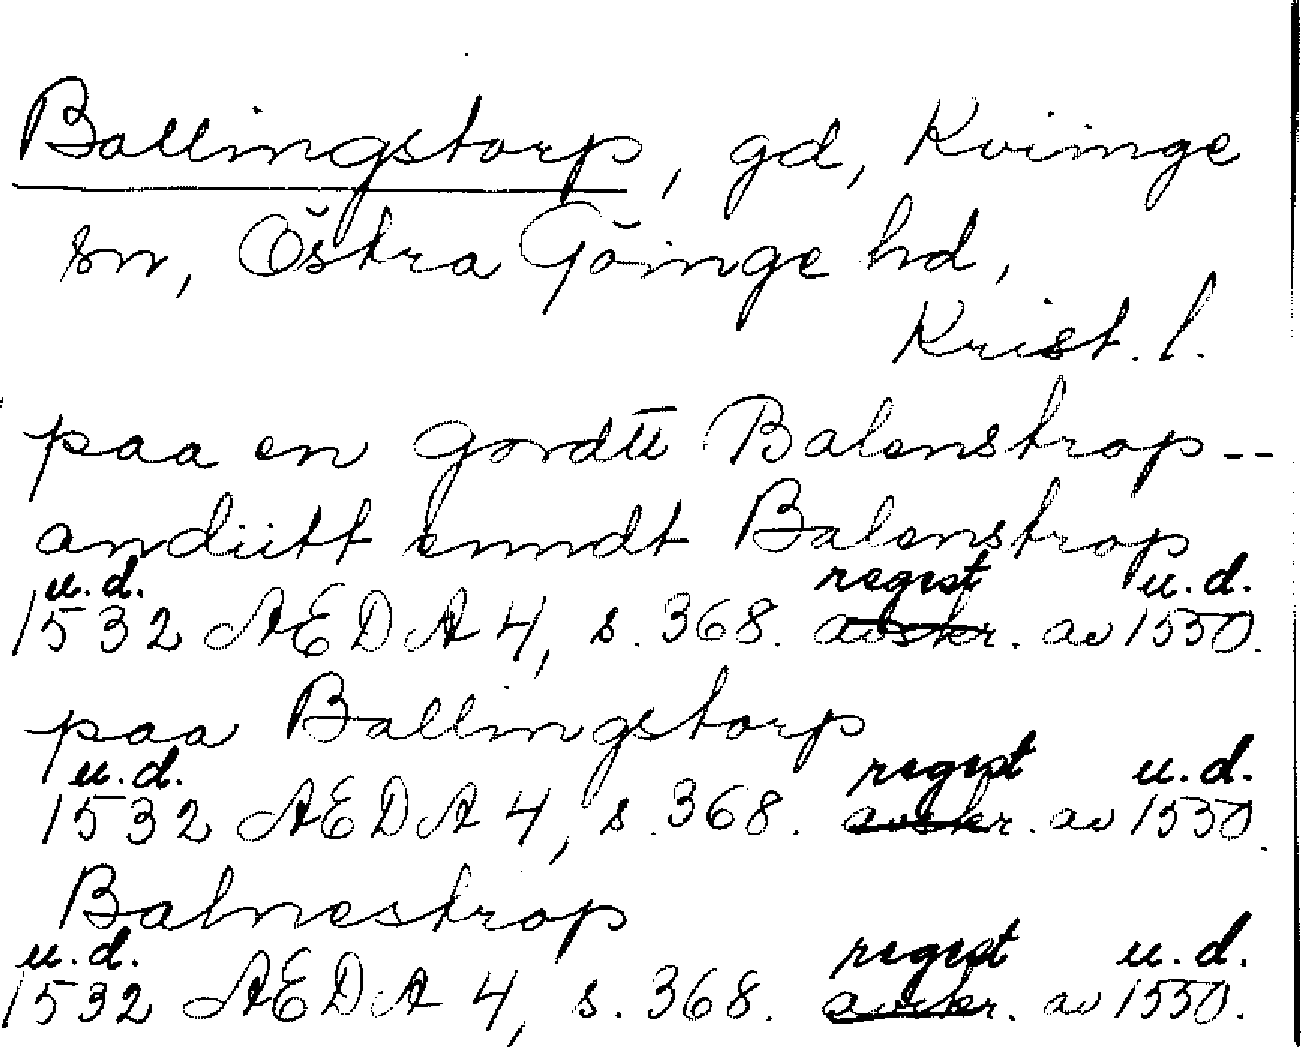 Ballingstorp, gd, Kviinge
sn, Östra Göinge hd,
Krist. l.
paa en gordtt Balenstrop --
andiitt enndt Balenstrop
u.d. regest u.d.
1532 AEDA 4, s. 368. avskr. av 1550.
paa Ballingstorp
u.d. regest u.d.
1532 AEDA 4, s. 368. avskr. av 1550.
Balnestrop
u.d. regest u.d.
1532 AEDA 4, s. 368. avskr. av 1550.